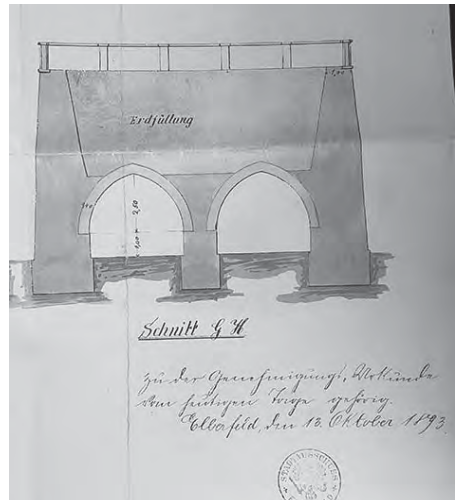 1,00
Erdfüllung
2,50
1,00
Schnitt G H
Zu der Genehmigungs-Urkunde
vom heutigen Tage gehörig.
Elberfeld, den 13. Oktober 1893.
STADTAUSSCHUSS